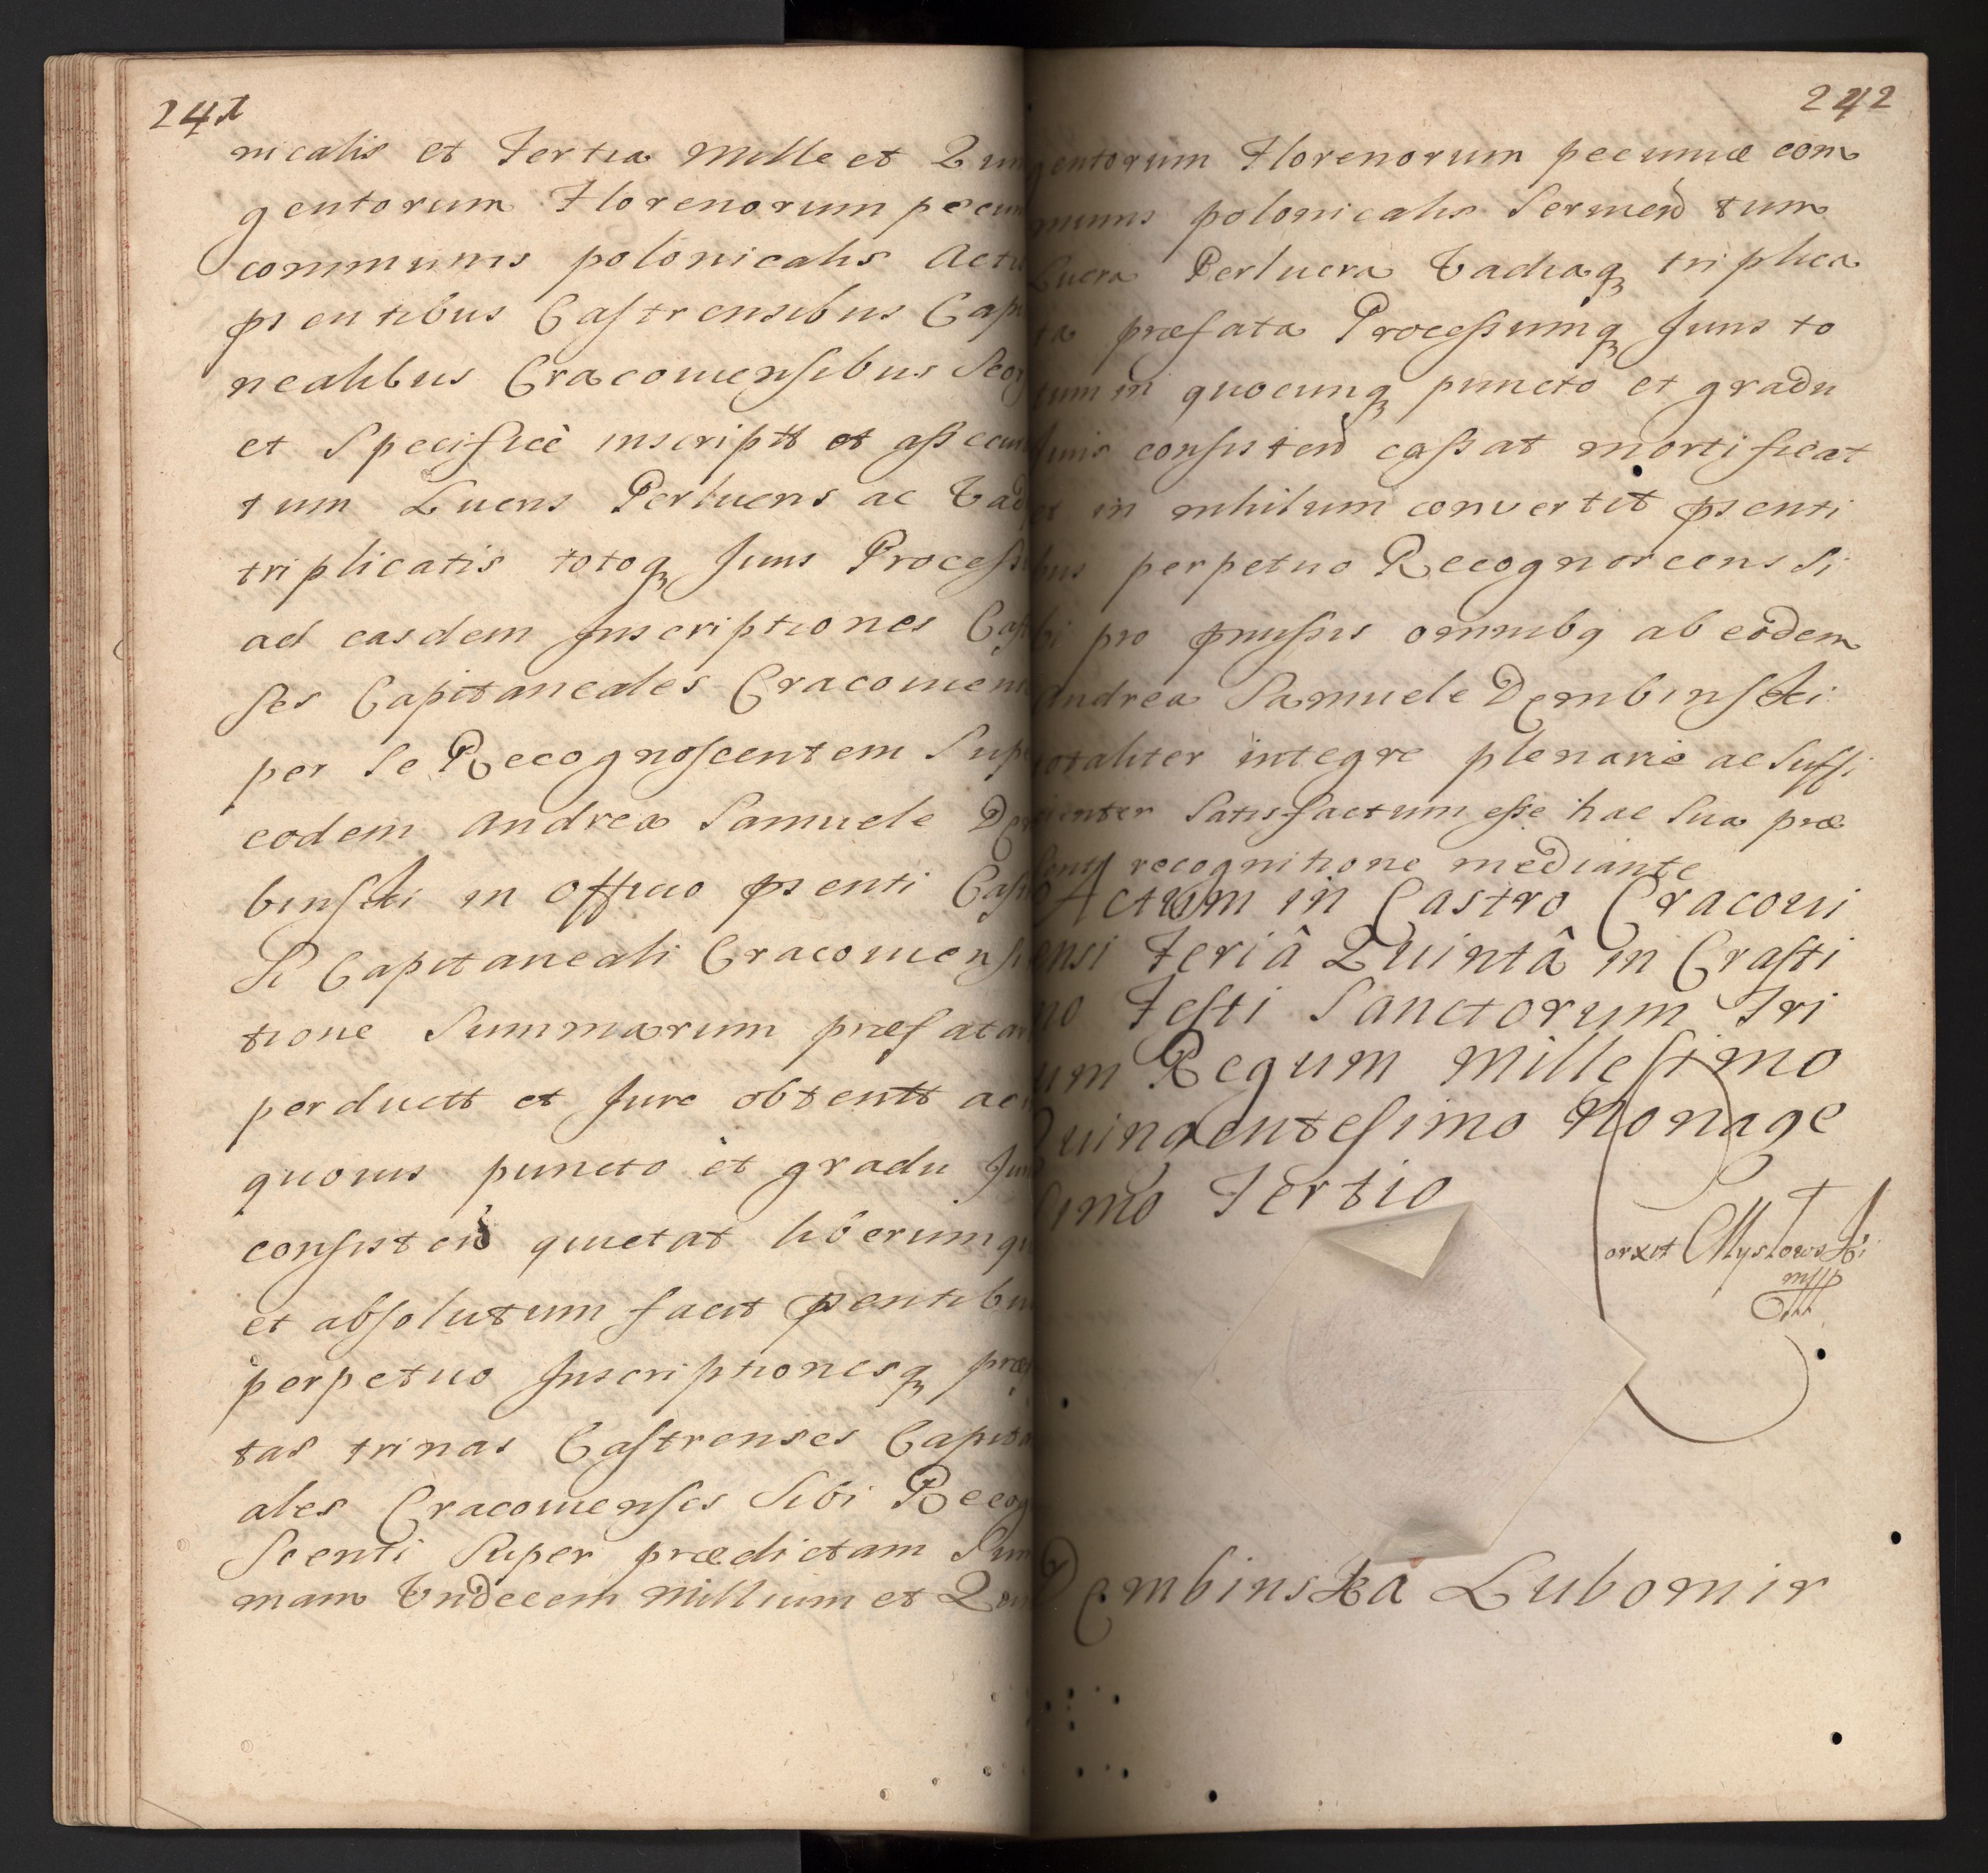 241
nicalis et Tertia Mille et Quin
gentorum Florenorum pecun
communis polonicalis Actis
pntibus Castrensibus Capi
nealibus Cracouiensibus Seor
et Specifice inscriptt et assecura
tum Lucris Perlucris ac Vad
triplicatis totoq Juris Process
ad easdem Inscriptiones Cast
ses Capitaneales Cracouien
per Se Recognoscentem Supe
eodem Andrea Samuele De
binski in Officio psenti Cast
Si Capitaneali Cracouiensi
tione Summarum præfatar
perductt et Jure obtentt ac
quouis puncto et gradu Jur
consisten quietat liberumq
et absolutum facit psentibu
perpetuo Inscriptionesq præ
tas trinas Castrenses Capita
ales Cracouienses Sibi Recog
Scenti Super prædictam Sum
mam Undecem Millium et Quin
242
gentorum Florenorum pecuniæ com
munis polonicalis Seruien tum
Lucra Perlucra Vadiaq triplica
ta præfata Processumq Juris to
tum in quocunq puncto et gradu
Juris consisten cassat mortificat
et in nihilum conuertit psenti
bus perpetuo Recognoscens Si
bi pro pmissis omnibq ab eodem
Andrea Samuele Dembinski
totaliter integre plenarie ac Suffi
cienter Satisfactum esse hac Sua præ
senti recognitione mediante
Actum in Castro Cracoui
ensi Feriâ Quintâ in Crasti
no Festi Sanctorum Tri
um Regum Millesimo
Quingentesimo Nonage
simo Tertio
Dembinska Lubomir